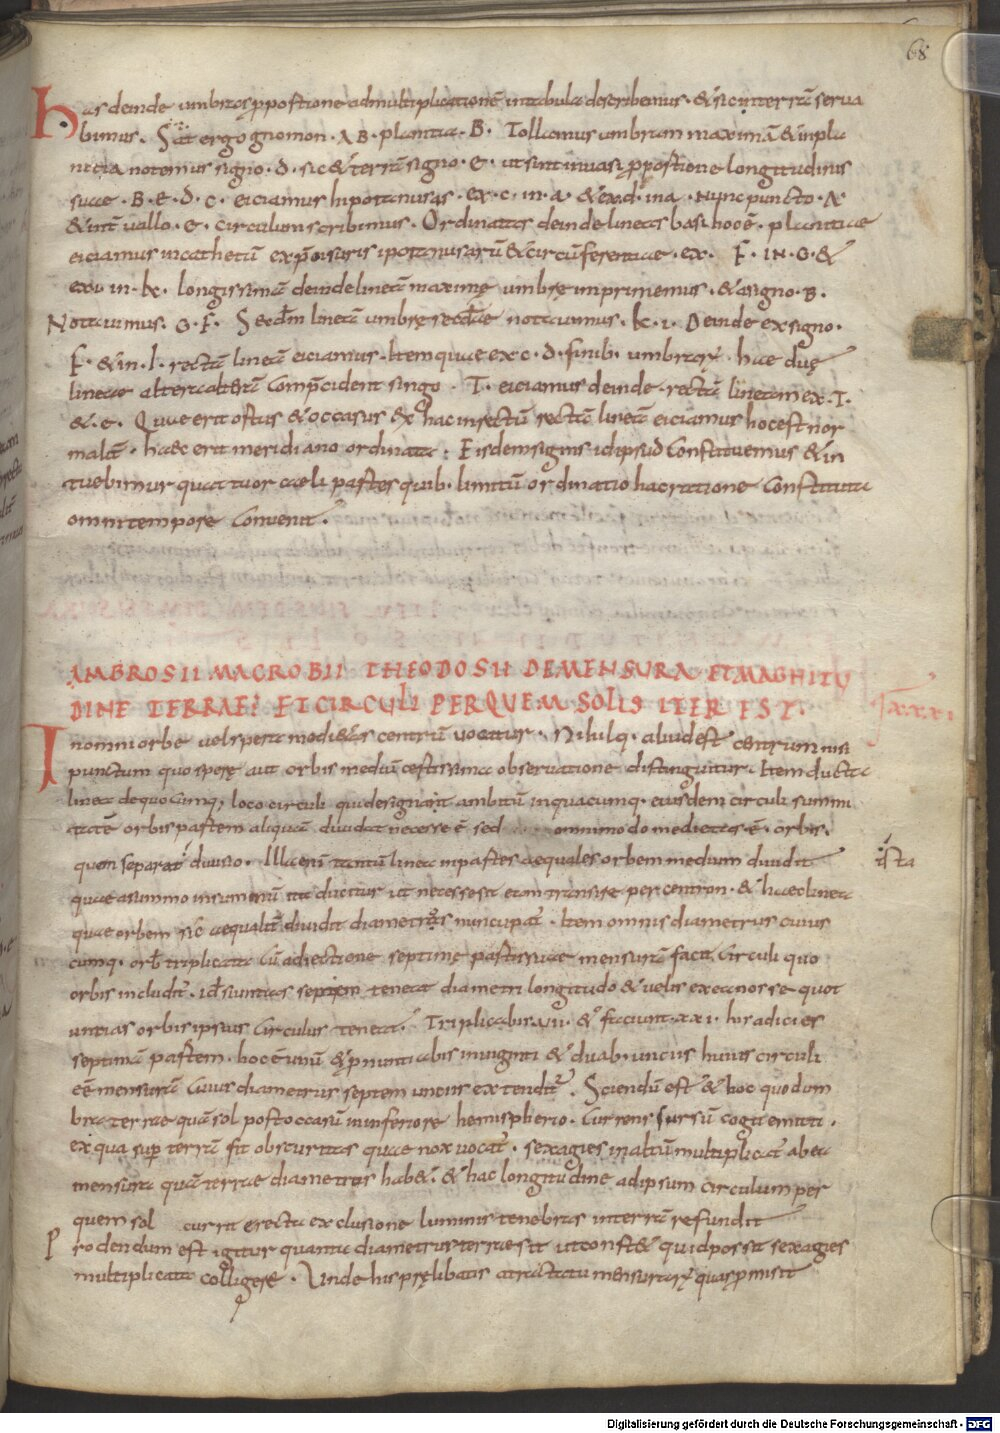 68
has deinde umbras ꝓpostione admultiplicationē intabula describemus · & sicinterrā serua
bimus . Sit ergo gnomon · AB · planitia · B · Tollamus umbram maximā & inpla
nitia notemus signo · d · sic & terrā signo · e · ut sint inuasę ꝓpostione longitudinis
suae · B · E · D · C · eiciamus hipotanusas · ex · c · in · a · & exd · ina · Nunc puncto · A
& intuallo · e · circulum scribimus · Ordinatas deinde lineas basi hocē · planitiae
eiciamus incathetū expōisuris ipotanusarū & circūferentiae · ex · F · IN · G · &
exi · in · k · longissimā deinde lineā maximę umbrę imprimemus · & asigno · B ·
Notauimus · G · F · Secdm lineā umbrę secdae notauimus · k · i · Deinde exsigno ·
F · & in · l · rectā lineā eiciamus · Item quae exc · d · finib · umbrarꝝ · hae duę
lineae altera alterā comp̄cident singo · T · eiciamus deinde · rectā lineam ex · T ·
& · e · Quae erit ortus & occasus & ex hac insectū rectā lineā eiciamus hoc est nor
malē · haec erit meridiano ordinata : Eisdem signis idipsud constituemus & in
tuebimur quattuor caeli partes quib · limitū ordinatio hac ratione constituta
omni tempore conuenit .
AMBROSII MACROBII THEODOSII DEMENSURA ET MAGNITU
DINE TERRAE: ET CIRCULI PER QUEM SOLIS ITER EST .
lxxxi .
In omni orbe uel spera medietas centrū uocatur · Nihilq · aliud est centrum nisi
punctum quo sperę aut orbis mediū certissima obseruatione distinguitur · Item ducta
linea de quocumq; loco circuli qui designant ambitū inquacumq · eiusdem circuli summi
tatē orbis partem aliquam diuidat necesse ē sed omnimodo medietas · ē · orbis ·
ista
quam separat diuisio · Illa enī tantū linea inpartes aequales orbem medium diuidit
quae asummo inimum ita ducitur ut necesse sit eam transire per centron · & haec linea
quae orbem sic aequalit diuidit diametros nuncupat · Item omnis diametrus cuius
cumq · orb triplicata cū adiectione septimę partis suae mensurā facit circuli quo
orbis includit · id ē si uncias septem teneat diametri longitudo & uelis exea nosse quot
uncias orbis ipsius circulus teneat · Triplicabis · uii · & faciunt · xxi · his adicies
septimā partem · hoc ē unū & ꝓnuntiabis inuiginti & duab; unciis huius circuli
eē mensurā cuius diametrus septem unciis extenditur . Sciendū est & hoc quod um
bra terrae quā sol post occasū ininferiore hemispherio · currens sursū cogit emitti ·
ex qua sup terrā fit obscuritas quae nox uocat · sexagies inaltū multiplicat abea
mensura quā terrae diametros hab& · & hac longitudine adipsum circulum per
quem sol currit erecta exclusione luminis tenebras interrā refundit
Prodendum est igitur quanta diametrus terrae sit ut const& quid possit sexagies
multiplicata colligere · Unde his pręlibatis atractatu mensurarꝝ quas ꝓmisit
Digitalisierung gefördert durch die Deutsche Forschungsgemeinschaft - DFG